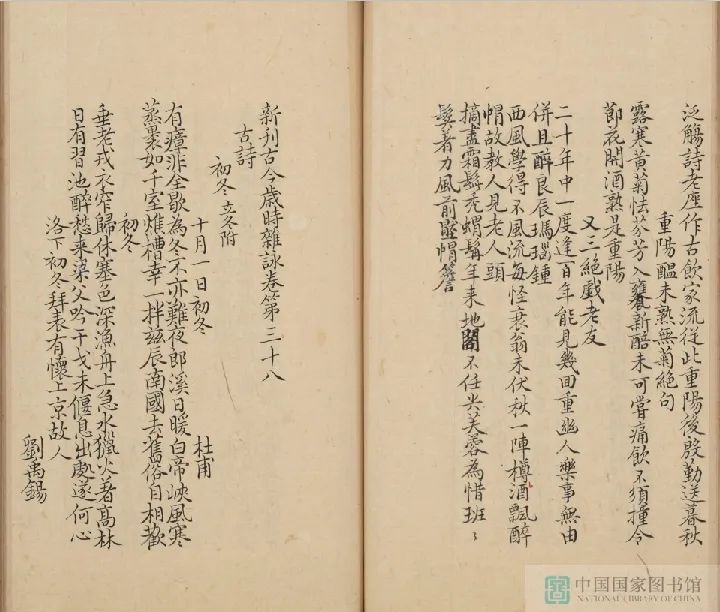 泛觴詩老厘作古飲家流從此重陽後殷勤送暮秋
重陽醖未熟無菊絶句
露寒黄菊怯芬芳入甕新醅未可嘗痛飲不須撞令
節花開酒熟是重陽
又二絶戲老友
二十年中一度逢百年能見幾囬重幽人樂事無由
併且醉良辰瑪瑙鍾
西風學得不風流每怪衰翁未伏秋一陣樽酒飄醉
帽故教人見老人頭
搞盡霜髯禿蝟鬚年来地閣不任共芙蓉為惜班〻
鬢著力風前壓帽簷
新刊古今歲時雜詠卷第三十八
古詩
初冬 立冬附
十月一日初冬 杜甫
有瘴非全歇為冬不亦難夜郎溪日暖白帝峽風寒
蒸裹如千室燋槽幸一柈兹辰南國去舊俗自相歡
初冬
垂老戎衣窄歸休塞色深漁舟上急水獵火著高林
日有習池醉愁来梁父吟干戈未偃息出處遂何心
洛下初冬拜表有懷上京故人
劉禹錫
中国国家图书馆
NATIONAL LIBRARY OF CHINA